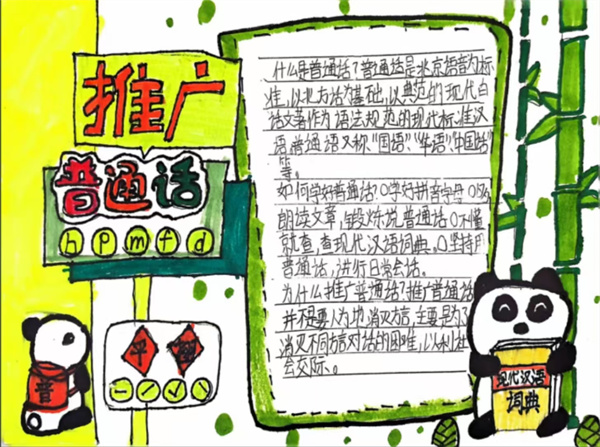 推广
普通话
b p m f d
平
ー ／ ∨ ✓
普
什么是普通话？普通话是北京语音为标
准，以北方话为基础，以典范的现代白
话文著作为语法规范的现代标准汉
语普通语又称“国语”“华语”“中国话”
等。
如何学好普通话？①学好拼音字母
朗读文章，锻炼说普通话 不懂
就查，查现代汉语词典。 坚持用
普通话，进行日常会话。
为什么推广普通话？推广普通话
并不是要人为地消灭方言，主要是为了
消灭不同方言对话的困难，以利社
会交际。
现代汉语
词典